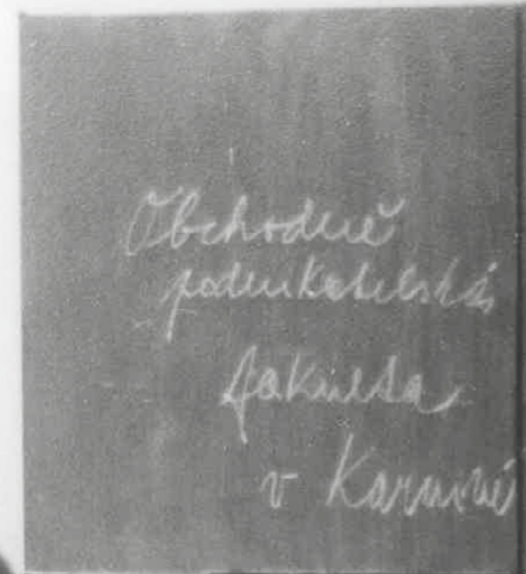 Obchodně
podnikatelská
fakulta
v Karviné